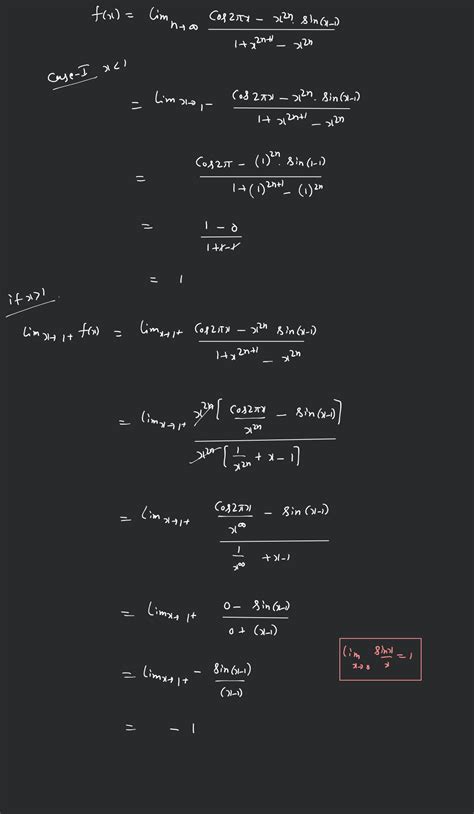 f(x) = lim n→∞ (cos2πx − x²ⁿ. sin(x-1)) / (1 + x²ⁿ⁺¹ − x²ⁿ)
Case-I x<1
= lim x→1- (cos2πx − x²ⁿ. sin(x-1)) / (1 + x²ⁿ⁺¹ − x²ⁿ)
= (cos2π − (1)²ⁿ. sin(1-1)) / (1+(1)²ⁿ⁺¹ − (1)²ⁿ)
= (1 − 0) / (1+1-1)
= 1
if x>1.
lim x→1+ f(x) = lim x→1+ (cos2πx − x²ⁿ sin(x-1)) / (1+x²ⁿ⁺¹ − x²ⁿ)
= lim x→1+ x²ⁿ[cos2πx / x²ⁿ − sin(x-1)] / x²ⁿ[1/x²ⁿ + x − 1]
= lim x→1+ (cos2πx / x^∞ − sin(x-1)) / (1/x^∞ + x-1)
= lim x→1+ (0 − sin(x-1)) / (0 + (x-1))
= lim x→1+ − sin(x-1) / (x-1)
lim x→0 sinx/x = 1
= − 1